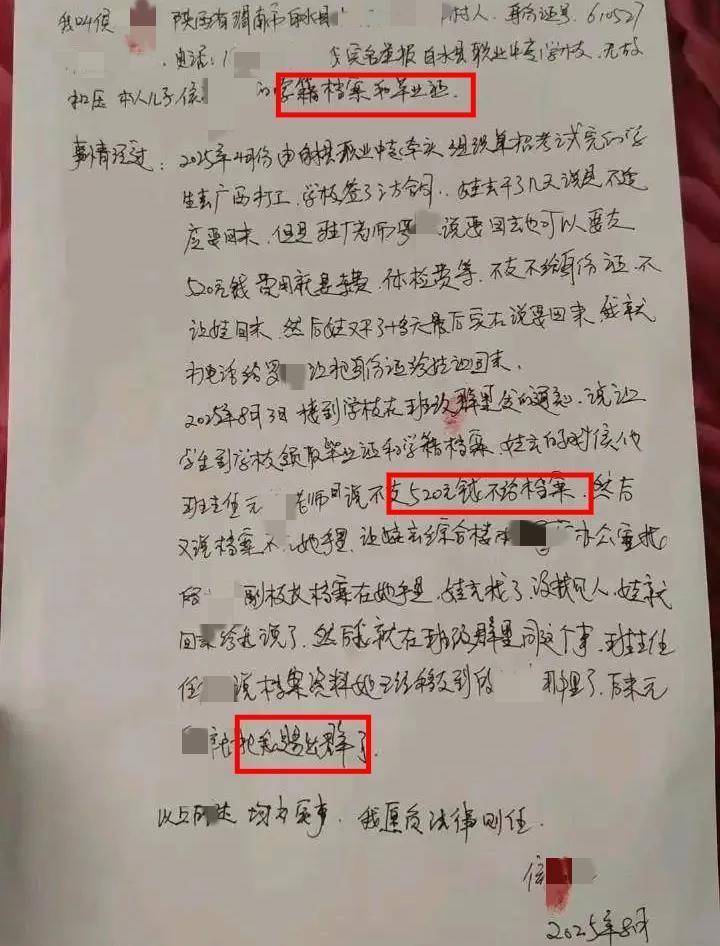 我叫侯 陕西省渭南市白水县 村人,身份证号,610527
,电话:1 我实名举报白水县职业中专学校,无故
扣压本人儿子侯 的学籍档案和毕业证.
事情经过:2025年4月份由白水县职业中专牵头组织单招考试完的学
生去广西打工,学校签了三方合同,娃去干了几天说是不适
应要回来,但是驻厂老师罗 说要回去也可以要交
520元钱费用就是车费,体检费等,不交不给身份证,不
让娃回来,然后娃又干了十多天最后实在说要回来,我就
打电话给罗 让把身份证给娃返回来.
2025年8月3日接到学校在班级群里发的通知,说让
学生到学校领取毕业证和学籍档案,娃去的时候他
班主任元 老师说不交520元钱不给档案,然后
又说档案不 她手里,让娃去综合楼 办公室找
副校长档案在她手里,娃去找了,没找见人,娃就
回来给我说了,然后我就在班级群里问这个事,班主任
任 说档案资料她已经移交到 那里了,后来元
把我踢出群了.
以上 均为实事,我愿负法律则任.
侯
2025年8月